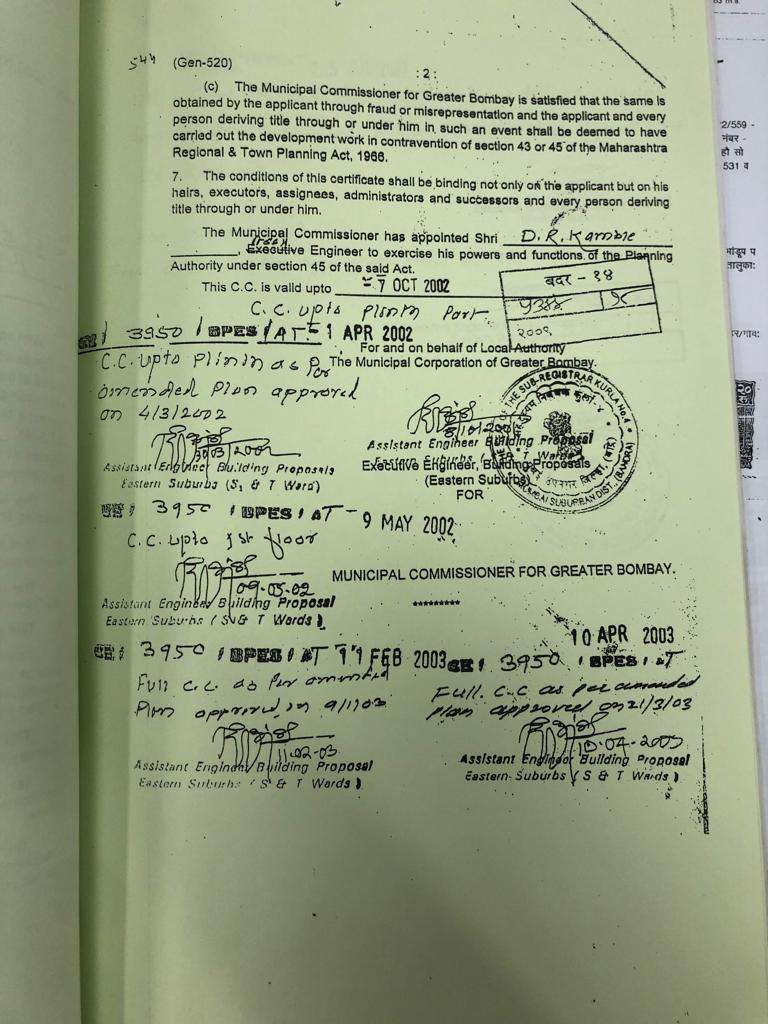 544 (Gen-520)
: 2 :
(c) The Municipal Commissioner for Greater Bombay is satisfied that the same is
obtained by the applicant through fraud or misrepresentation and the applicant and every
person deriving title through or under him in such an event shall be deemed to have
carried out the development work in contravention of section 43 or 45 of the Maharashtra
Regional & Town Planning Act, 1966.
7. The conditions of this certificate shall be binding not only on the applicant but on his
hairs, executors, assignees, administrators and successors and every person deriving
title through or under him.
The Municipal Commissioner has appointed Shri D. R. Kamble
Executive Engineer to exercise his powers and functions of the Planning
Authority under section 45 of the said Act.
This C.C. is valid upto - 7 OCT 2002
बदर - १४
C.C. upto plinth Part
२००९
CE / 3950 / BPES / AT - 1 APR 2002
For and on behalf of Local Authority
C.C. upto Plinth as Per
The Municipal Corporation of Greater Bombay.
amended Plan approved
on 4/3/2002
THE SUB-REGISTRAR KURLA No.4
MUMBAI SUBURBAN DIST., (BANDRA)
Assistant Engineer Building Proposal
Eastern Suburbs ( & T Wards )
Executive Engineer, Building Proposals
(Eastern Suburbs)
FOR
Assistant Engineer Building Proposals
Eastern Suburbs (S, & T Ward)
CE / 3950 / BPES / AT - 9 MAY 2002
C.C. upto 1st floor
09-05-02
MUNICIPAL COMMISSIONER FOR GREATER BOMBAY.
*********
Assistant Engineer Building Proposal
Eastern Suburbs ( S & T Wards )
CE / 3950 / BPES / AT 11 FEB 2003
Full C.C. as Per ammended
Plan approved on 9/1/03
11-02-03
Assistant Engineer Building Proposal
Eastern Suburbs ( S & T Wards )
10 APR 2003
CE / 3950 / BPES / AT
Full C.C as per amended
plan approved on 21/3/03
10-04-2003
Assistant Engineer Building Proposal
Eastern Suburbs ( S & T Wards )
2/559 -
नंबर -
हौ सो
531 व
भांडूप प
तालुका: